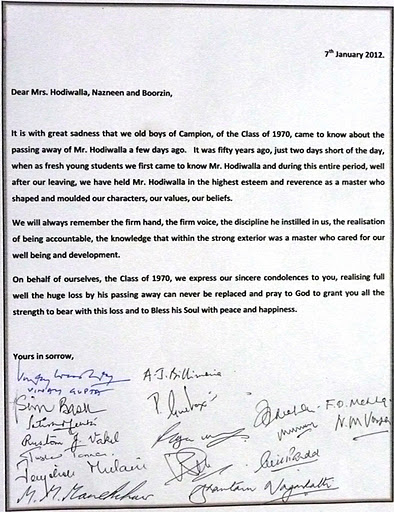 7th January 2012.
Dear Mrs. Hodiwalla, Nazneen and Boorzin,
It is with great sadness that we old boys of Campion, of the Class of 1970, came to know about the
passing away of Mr. Hodiwalla a few days ago. It was fifty years ago, just two days short of the day,
when as fresh young students we first came to know Mr. Hodiwalla and during this entire period, well
after our leaving, we have held Mr. Hodiwalla in the highest esteem and reverence as a master who
shaped and moulded our characters, our values, our beliefs.
We will always remember the firm hand, the firm voice, the discipline he instilled in us, the realisation
of being accountable, the knowledge that within the strong exterior was a master who cared for our
well being and development.
On behalf of ourselves, the Class of 1970, we express our sincere condolences to you, realising full
well the huge loss by his passing away can never be replaced and pray to God to grant you all the
strength to bear with this loss and to Bless his Soul with peace and happiness.
Yours in sorrow,
A.J. Billimoria
VINAY GUPTA
F.D. Mehta
N.M
Rustom J. Vakil